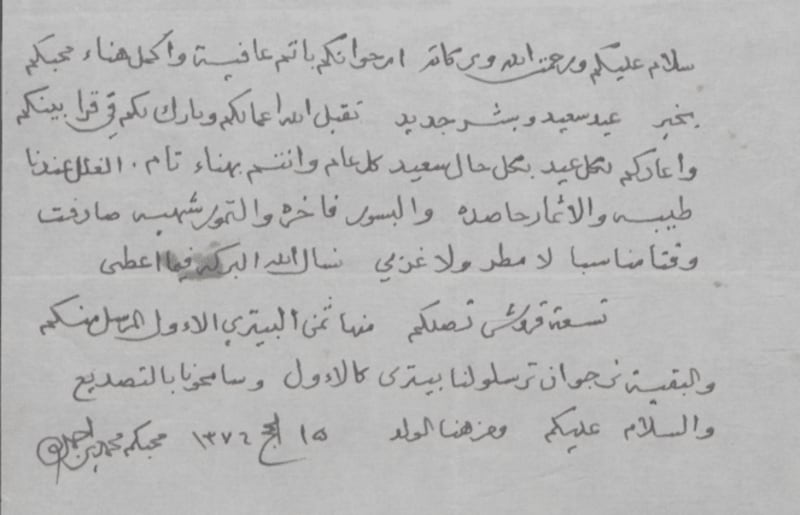 سلام عليكم ورحمت الله وبركاته ارجوا انكم باتم عافية واكمل هناء محبكم
بخير عيد سعيد وبشر جديد تقبل الله اعمالكم وبارك لكم في قرا بينكم
واعادكم لكل عيد بكل حال سعيد كل عام وانتم بهناء تام . الغلل عندنا
طيبه والاثمار حاصده والبسور فاخره والتمور شهيه صادفت
وقتا مناسبا لا مطر ولا غربي نسال الله البركه فيما اعطى
تسعة قروش تصلكم منها ثمن البيتري الاول المرسل منكم
والبقية نرجوا ان ترسلولنا بيترى كالاول وسامحونا بالتصديع
والسلام عليكم ومن هنا الولد ١٥ الحج ١٣٧٤ محبكم محمد بن احمد